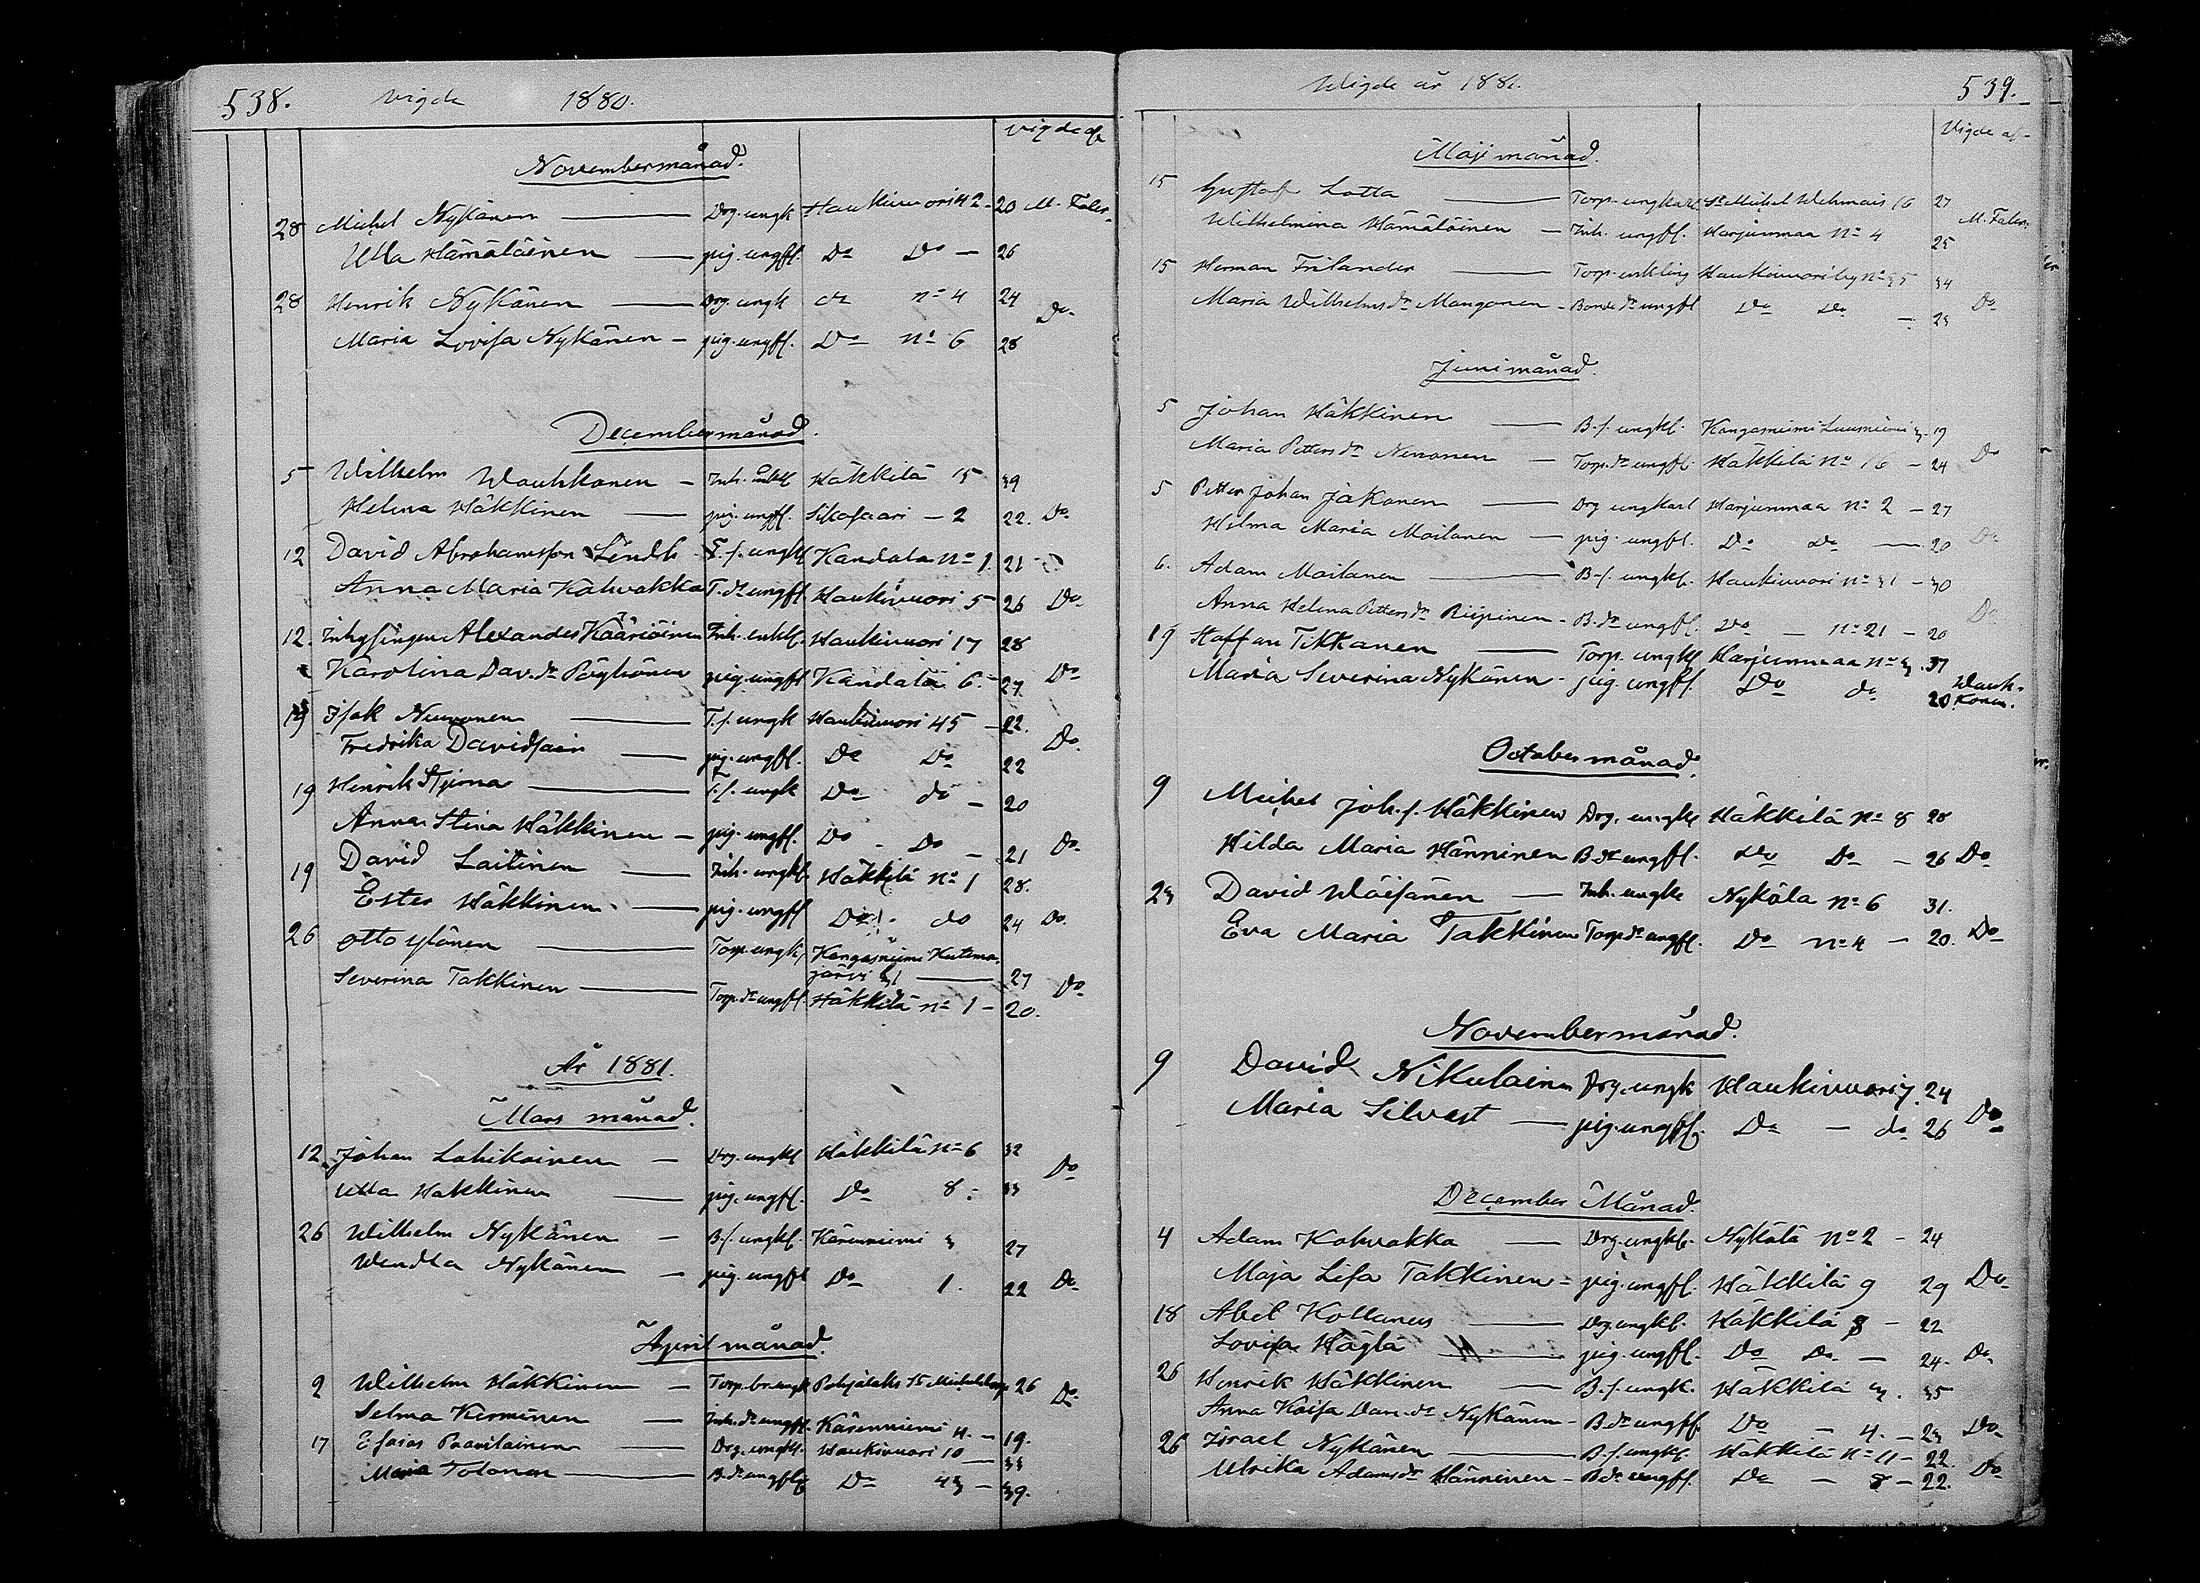 538. vigde 1880.
vigde af
Novembermånad.
28 Michel Nykänen Drg. ungk Haukivuori 42 - 20 M. Faler.
Ulla Hämäläinen pig. ungfl. Do Do - 26
28 Henrik Nykänen Drg. ungk do no 4 24 Do
Maria Lovisa Nykänen - pig. ungfl. Do no 6 28
Decembermånad.
5 Wilhelm Wauhkonen - Inh. enkl Häkkilä 15 39
Helena Häkkinen pig. ungfl. Sikasaari - 2 22. Do
12 David Abrahamsson Lindh T. s. ungkl Kandala no 1. 21
Anna Maria Kohvakka T. dr ungfl. Haukivuori 5 26 Do
12. Inhysingen Alexander Kääriöinen Inh. enkl. Haukivuori 17 28
Karolina Dav. dr Pöyhönen pig. ungfl Kandala 6. - 27. Do
19 Isak Nuuronen T. s. ungk Haukivuori 45 - 22.
Fredrika Davidsain pig. ungfl. Do Do 22 Do.
19 Henrik Stjerna T. s. ungk Do do - 20
Anna Stina Häkkinen - pig. ungfl. Do - Do - 21 Do
19 David Laitinen Inh. ungkl. Häkkilä no 1 28.
Ester Häkkinen pig. ungfl Do do 24 Do.
26 Otto Ylönen Torp. ungk, Kangasniemi Kutema-
järvi 31 27
Severina Takkinen Torp. dr ungfl Häkkilä no 1 - 20. Do
År 1881.
Mars månad.
12. Johan Lahikainen - Drg. ungkl Häkkilä no 6 32
Ulla Hakkinen pig. ungfl. Do 8 - 33 Do
26 Wilhelm Nykänen - B. s. ungkl. Kärenniemi 3 27
Wendla Nykänen - pig. ungfl Do 1. 22 Do
April månad.
2 Wilhelm Häkkinen - Torp. br. ungk Pohjalaks 15 26 Do
Selma Kerminen - Inh. dr ungfl. Kärenniemi 4. - 19.
17 Esaias Paavilainen Drg. ungkl. Haukivuori 10 33
Maria Tolonen B. dr ungfl Do 43 - 39.
Wigde år 1881. 539.
Vigde af
Maji månad.
15 Gustaf Lotta Torp. ungkarl St Michel Wehmais 16 27
Wilhelmina Hämäläinen - Inh. ungfl. Harjunmaa no 4 25 M. Faler.
15 Herman Frilander Torp. enkling Haukivuori by no 35 34
Maria Wilhelms dr Manganen - Bonde dr ungfl Do Do - 23 Do
Juni månad.
5 Johan Häkkinen B. s. ungkl. Kangasniemi Luusniemi 3. 19
Maria Petters dr Nenonen - Torp. dr ungfl. Häkkilä no 16 - 24 Do
5 Petter Johan Jäkonen Drg ungkarl Harjunmaa no 2 - 27
Helma Maria Moilanen - pig. ungfl. Do do 20 Do
6. Adam Moilanen B. s. ungkl. Haukivuori no 31 - 30
Anna Helena Petters dr Riipinen - B. dr ungfl. Do - no 21 - 20 Do
19 Staffan Tikkanen Torp. ungkl Harjunmaa no 3. 37
Maria Severina Nykänen - pig. ungfl. Do do 20 Wauh-
konen.
October månad.
9 Michel Joh. s. Häkkinen Drg. ungkl Häkkilä no 8 28
Hilda Maria Hänninen B. dr ungfl. do Do - 26 Do
23 David Wäisänen - Inh. ungkl Nykälä no 6 31.
Eva Maria Takkinen Torp dr ungfl. Do no 4 - 20. Do
Novembermånad.
9 David Nikulainen Drg. ungk Haukivuori 7. 24
Maria Silvast - pig. ungfl. Do - do 26 Do
December Månad.
4 Adam Kohvakka - Drg. ungkl. Nykälä no 2 - 24
Maja Lisa Takkinen - pig. ungfl. Häkkilä 9 29 Do
18 Abel Kollanus Drg. ungkl. Häkkilä 8 - 22
Lovisa Hägla pig. ungfl. Do Do - 24. Do
26 Henrik Häkkinen - B. s. ungk. Häkkilä 3. 35
Anna Kaisa Dav. dr Nykänen - B. dr ungfl Do - 4. - 23 Do
26 Israel Nykänen B. s. ungkl. Häkkilä no 11 - 22.
Ulrika Adams dr Hänninen - B. dr ungfl. Do - 8 - 22. Do